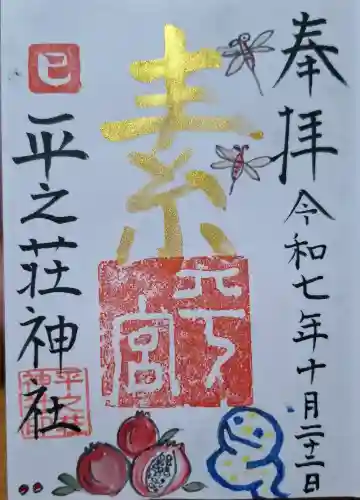 奉拝
令和七年十月二十二日
素
平
宮
巳
平之荘神社
平之荘
神社